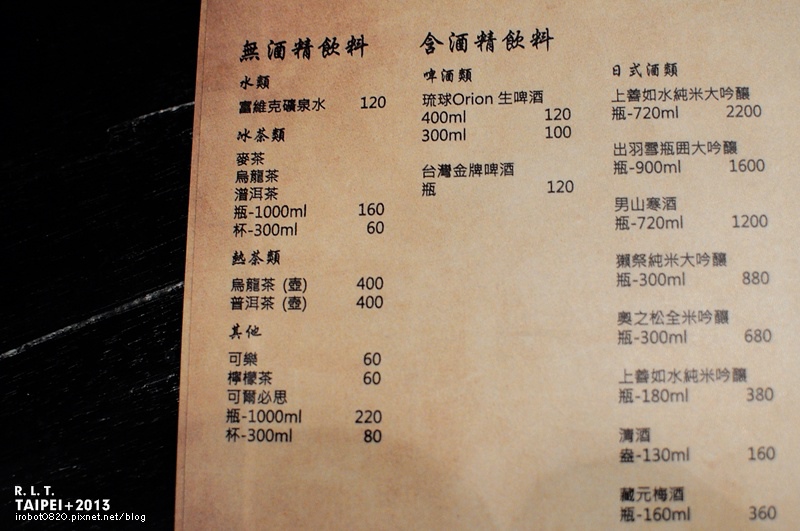 無酒精飲料
水類
富維克礦泉水 120
冰茶類
麥茶
烏龍茶
潽洱茶
瓶-1000ml 160
杯-300ml 60
熱茶類
烏龍茶 (壺) 400
普洱茶 (壺) 400
其他
可樂 60
檸檬茶 60
可爾必思
瓶-1000ml 220
杯-300ml 80
含酒精飲料
啤酒類
琉球Orion 生啤酒
400ml 120
300ml 100
台灣金牌啤酒
瓶 120
日式酒類
上善如水純米大吟釀
瓶-720ml 2200
出羽雪瓶囲大吟釀
瓶-900ml 1600
男山寒酒
瓶-720ml 1200
獺祭純米大吟釀
瓶-300ml 880
奧之松全米吟釀
瓶-300ml 680
上善如水純米吟釀
瓶-180ml 380
清酒
盎-130ml 160
藏元梅酒
瓶-160ml 360
R. L. T.
TAIPEI+2013
irobot0820.pixnet.net/blog